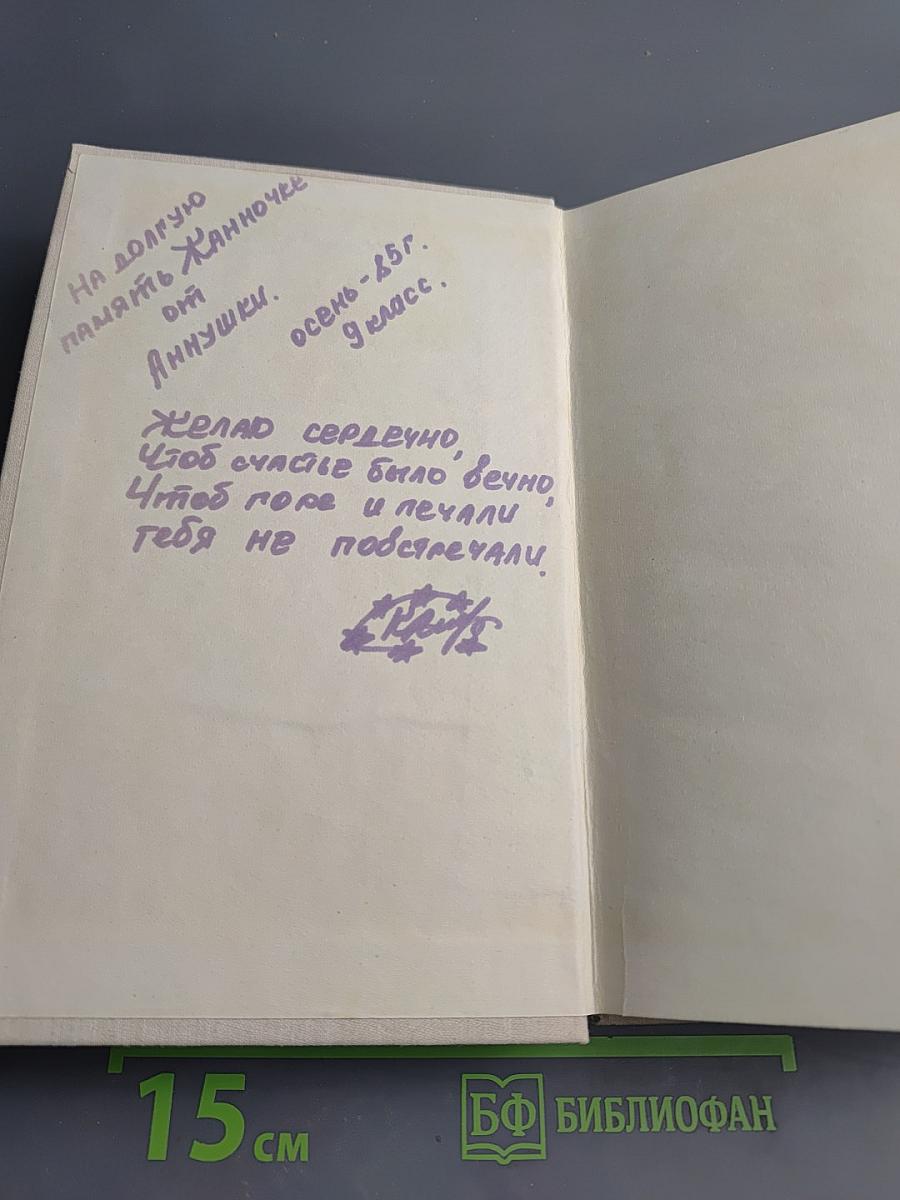 На долгую
память Жанночке
от
Аннушки.
осень-85г.
9 класс.
Желаю сердечно,
Чтоб счастье было вечно,
Чтоб горе и печали
тебя не повстречали.
15 см
БФ БИБЛИОФАН